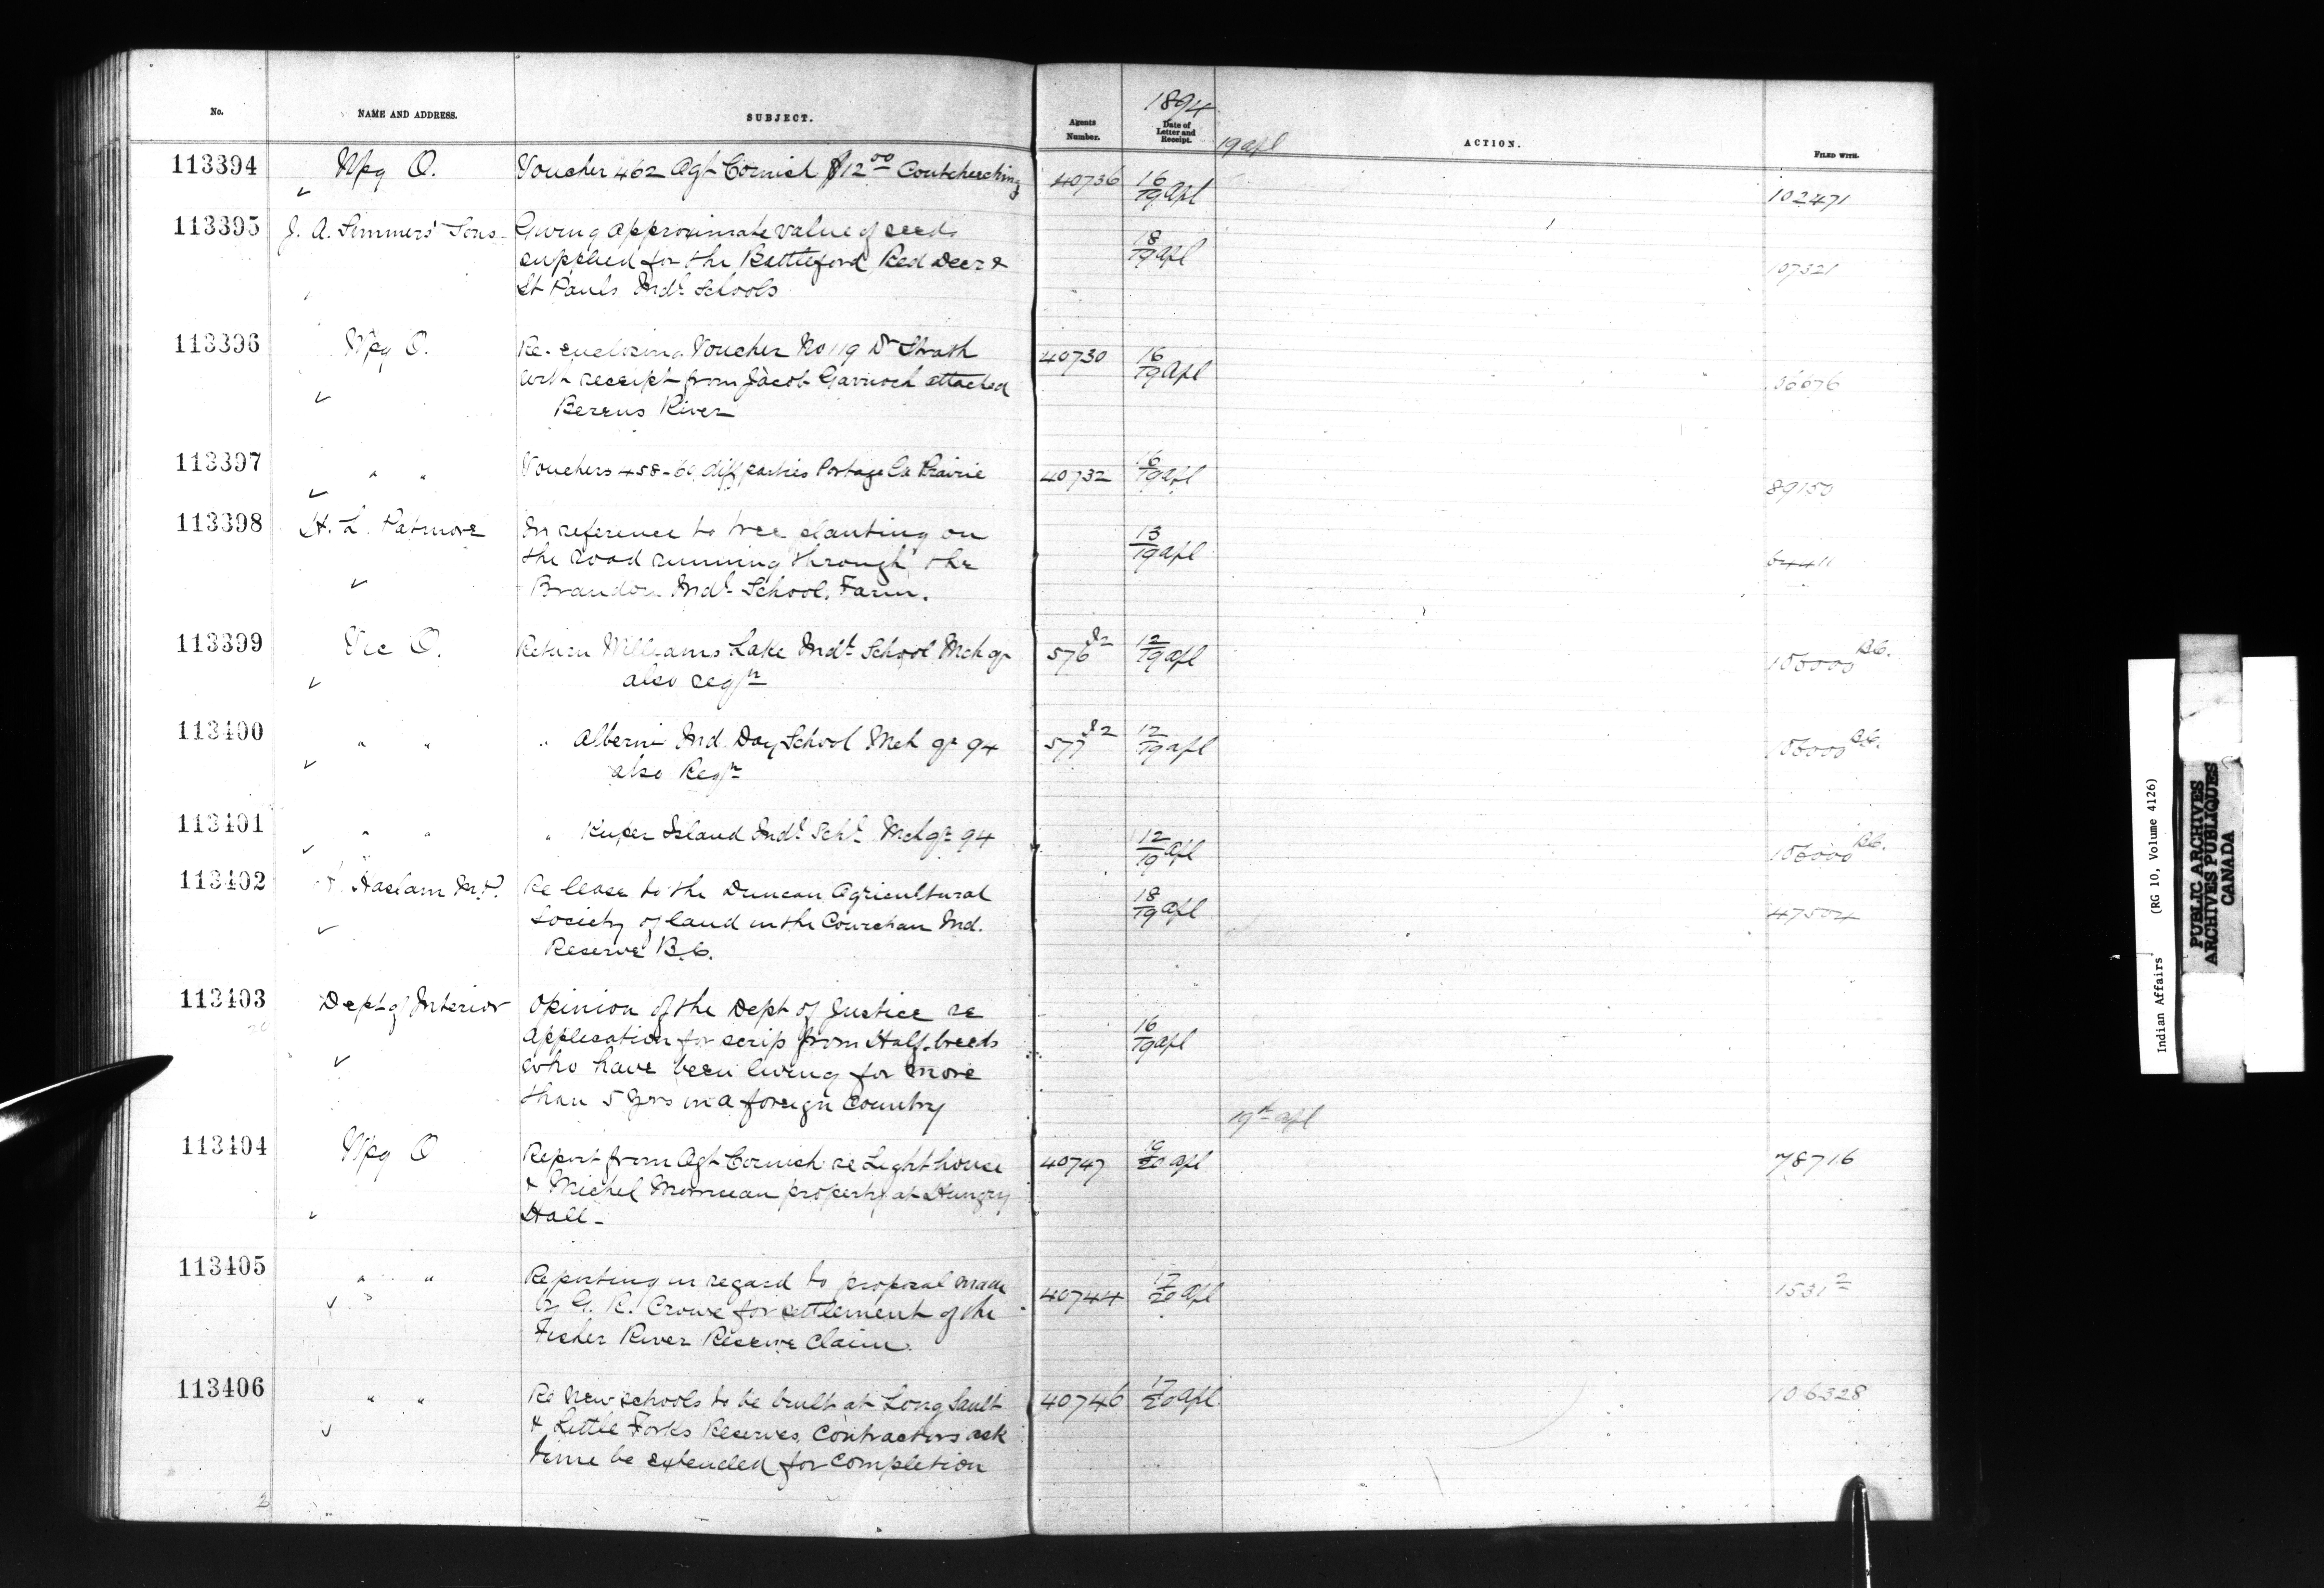 No. NAME AND ADDRESS. SUBJECT. Agents Number. 1894 Date of Letter and Receipt. ACTION. FILED WITH.
19 apl
113394 Wpg O. Voucher 462 Agt Cornish $12.00 Coutcheeching 40736 16/19 Apl 102471
113395 J. A. Simmers' Sons Giving approximate value of seeds 18/19 apl 107321
supplied for the Battleford Red Deer &
St Pauls Indl Schools
113396 Wpg O. Re-enclosing Voucher No 119 Dr Strath 40730 16/19 Apl 36676
with receipt from Jacob Garrioch attached
Berens River
113397 " " Vouchers 458-60 diff parties Portage La Prairie 40732 16/19 apl 89150
113398 H. L. Patmore In reference to tree planting on 13/19 apl
the road running through the
Brandon Indl School Farm.
113399 Vic O. Return Williams Lake Indl School Mch qr 576 12/19 apl 106000 B.C.
also reqn
113400 " " " Alberni Ind. Day School Mch qr 94 577 12/19 apl 106000 B.C.
also Reqn
113401 " " " Kuper Island Indl Schl Mch qr 94 12/19 apl 106000 B.C.
113402 Haslam M.P. Re lease to the Duncan Agricultural 18/19 apl 47504
Society of land in the Cowichan Ind.
Reserve B.C.
113403 Dept of Interior Opinion of the Dept of Justice re 16/19 apl
Application for scrip from Half-breeds
who have been living for more
than 5 yrs in a foreign country
19th apl
113404 Wpg O Report from Agt Cornish re Light house 40747 /20 apl 78716
& Michel Morriseau property at Hungry
Hall -
113405 " " Reporting in regard to proposal made 40744 17/20 apl 1531 2
by G. R. Crowe for settlement of the
Fisher River Reserve Claim.
113406 " " Re New schools to be built at Long Sault 40746 17/20 apl 106328
& Little Forks Reserves, Contractors ask
time be extended for completion
Indian Affairs (RG 10, Volume 4126)
PUBLIC ARCHIVES
ARCHIVES PUBLIQUES
CANADA